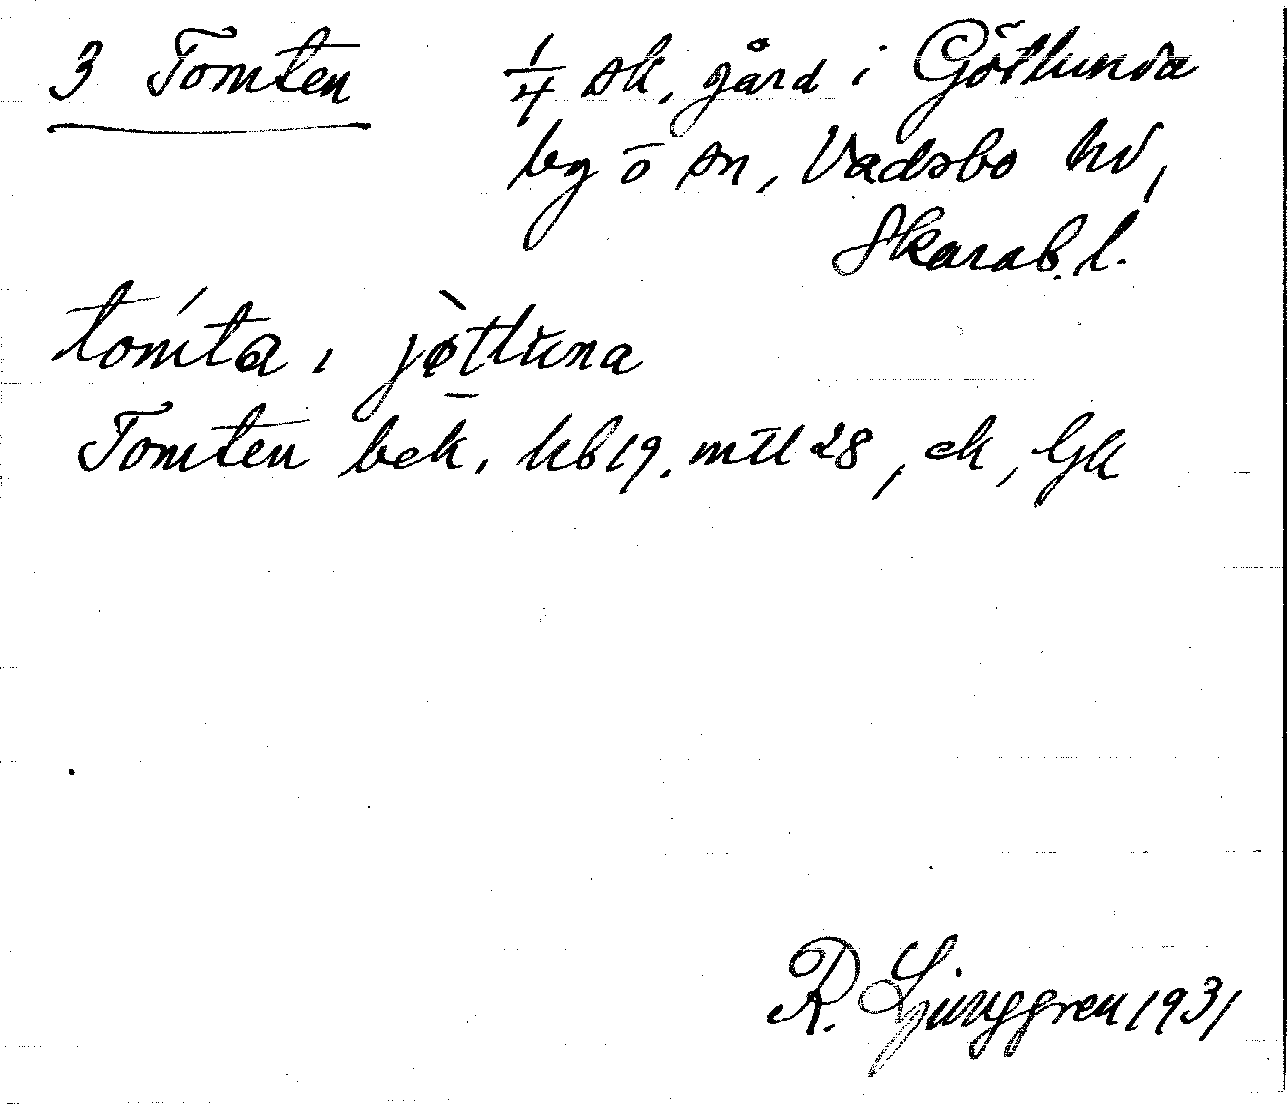 3 Tomten ¼ sk. gård i Götlunda
by o sn, Vadsbo hd,
Skarab. l.
tom̍ta, jøtluna
Tomten bek. hb 19. mtl 28, ek, Gk
R. Ljunggren 1931